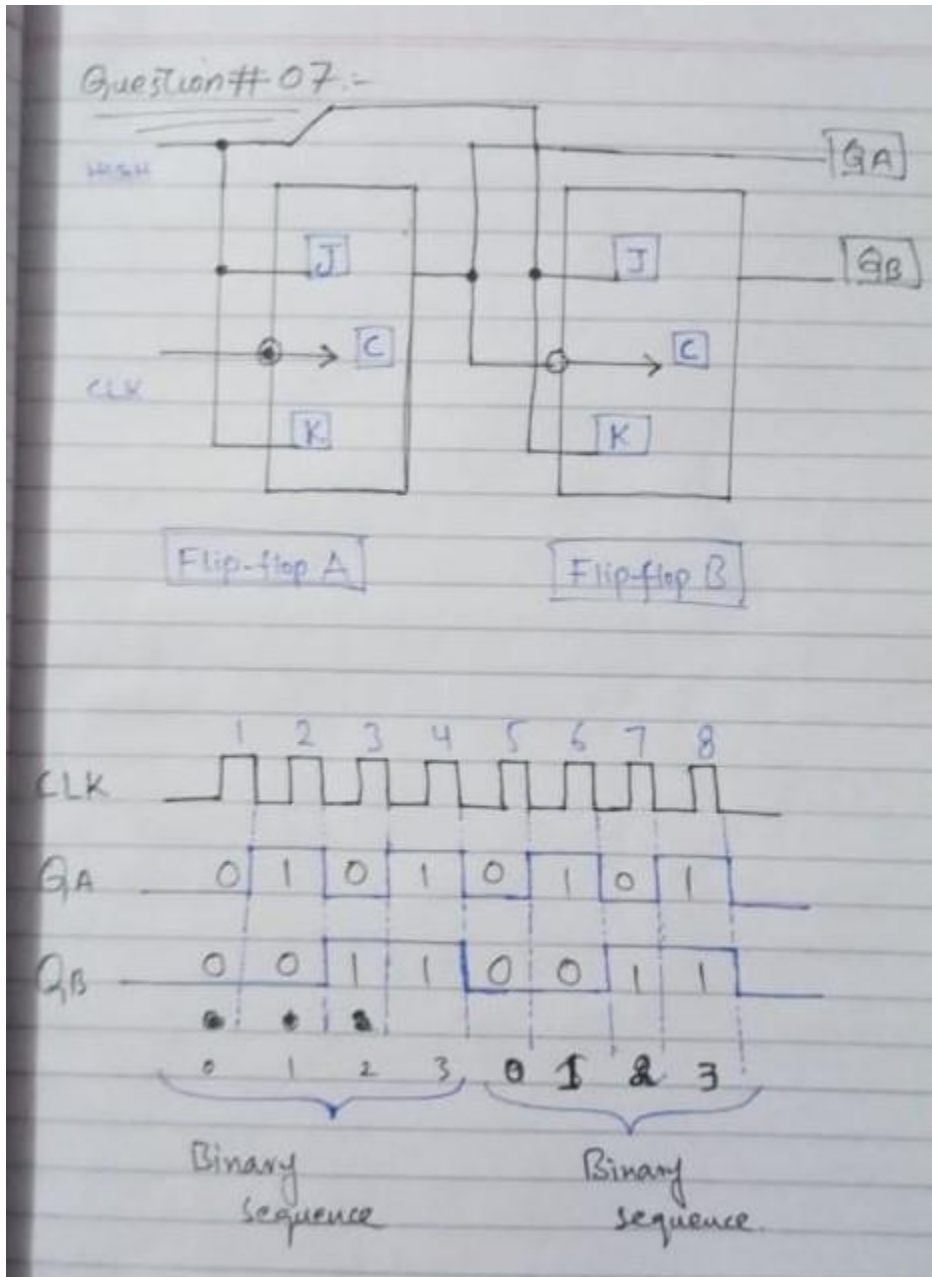 Question # 07:-
HIGH
QA
J
J
QB
C
C
CLK
K
K
Flip-flop A
Flip-flop B
1 2 3 4 5 6 7 8
CLK
QA 0 1 0 1 0 1 0 1
QB 0 0 1 1 0 0 1 1
0 1 2 3 0 1 2 3
Binary Binary
sequence sequence.